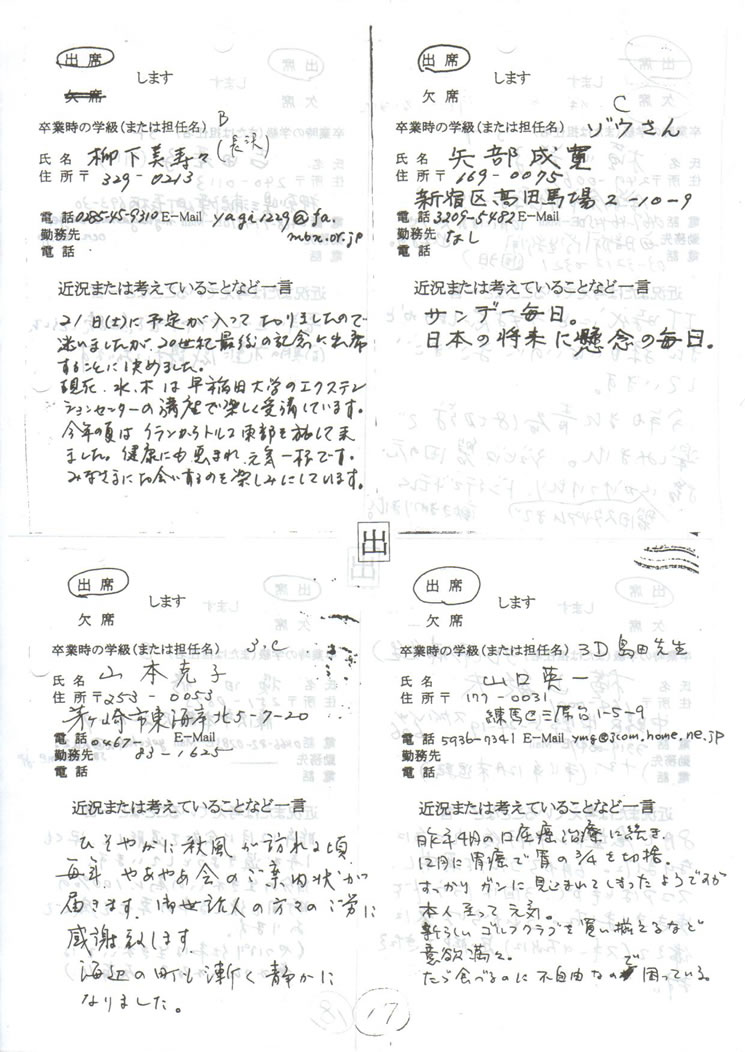 出席
します
欠席
卒業時の学級(または担任名) B
氏名 柳下美寿々(長沢)
住所 〒329-0213
電話 0285-45-9310 E-Mail yagi1229@fa.
mbn.or.jp
勤務先
電話
近況または考えていることなど一言
21日(土)に予定が入っておりましたので
迷いましたが、20世紀最後の記念に出席
することに決めました。
現在、水、木は早稲田大学のエクステン
ションセンターの講座で楽しく受講しています。
今年の夏はイランからトルコ東部を旅して来
ました。健康にも恵まれ、元気一杯です。
みなさまにお会いするのを楽しみにしています。
出席
します
欠席
C
卒業時の学級(または担任名) ゾウさん
氏名 矢部成寛
住所 〒169-0075
新宿区高田馬場2-10-9
電話 3209-5482 E-Mail
勤務先 なし
電話
近況または考えていることなど一言
サンデー毎日。
日本の将来に懸念の毎日。
出
出席
します
欠席
卒業時の学級(または担任名) 3.C
氏名 山本克子
住所 〒253-0053
茅ヶ崎市東海岸北5-7-20
電話 0467 E-Mail
勤務先 83-1625
電話
近況または考えていることなど一言
ひそやかに秋風が訪れる頃
毎年 やあやあ会のご案内状が
届きます。御世話人の方々のご労に
感謝致します。
海辺の町も漸く静かに
なりました。
出席
します
欠席
卒業時の学級(または担任名) 3D 島田先生
氏名 山口英一
住所 〒177-0031
練馬区三原台1-5-9
電話 5936-7341 E-Mail ymg@3com.home.ne.jp
勤務先
電話
近況または考えていることなど一言
昨年4月の口腔癌治療に続き、
12月に胃癌で胃の3/4を切捨。
すっかりガンに見込まれてしまったようですが
本人至って元気。
新らしいゴルフクラブを買い揃えるなど
意欲満々。
たゞ食べるのに不自由なので困っている。
17